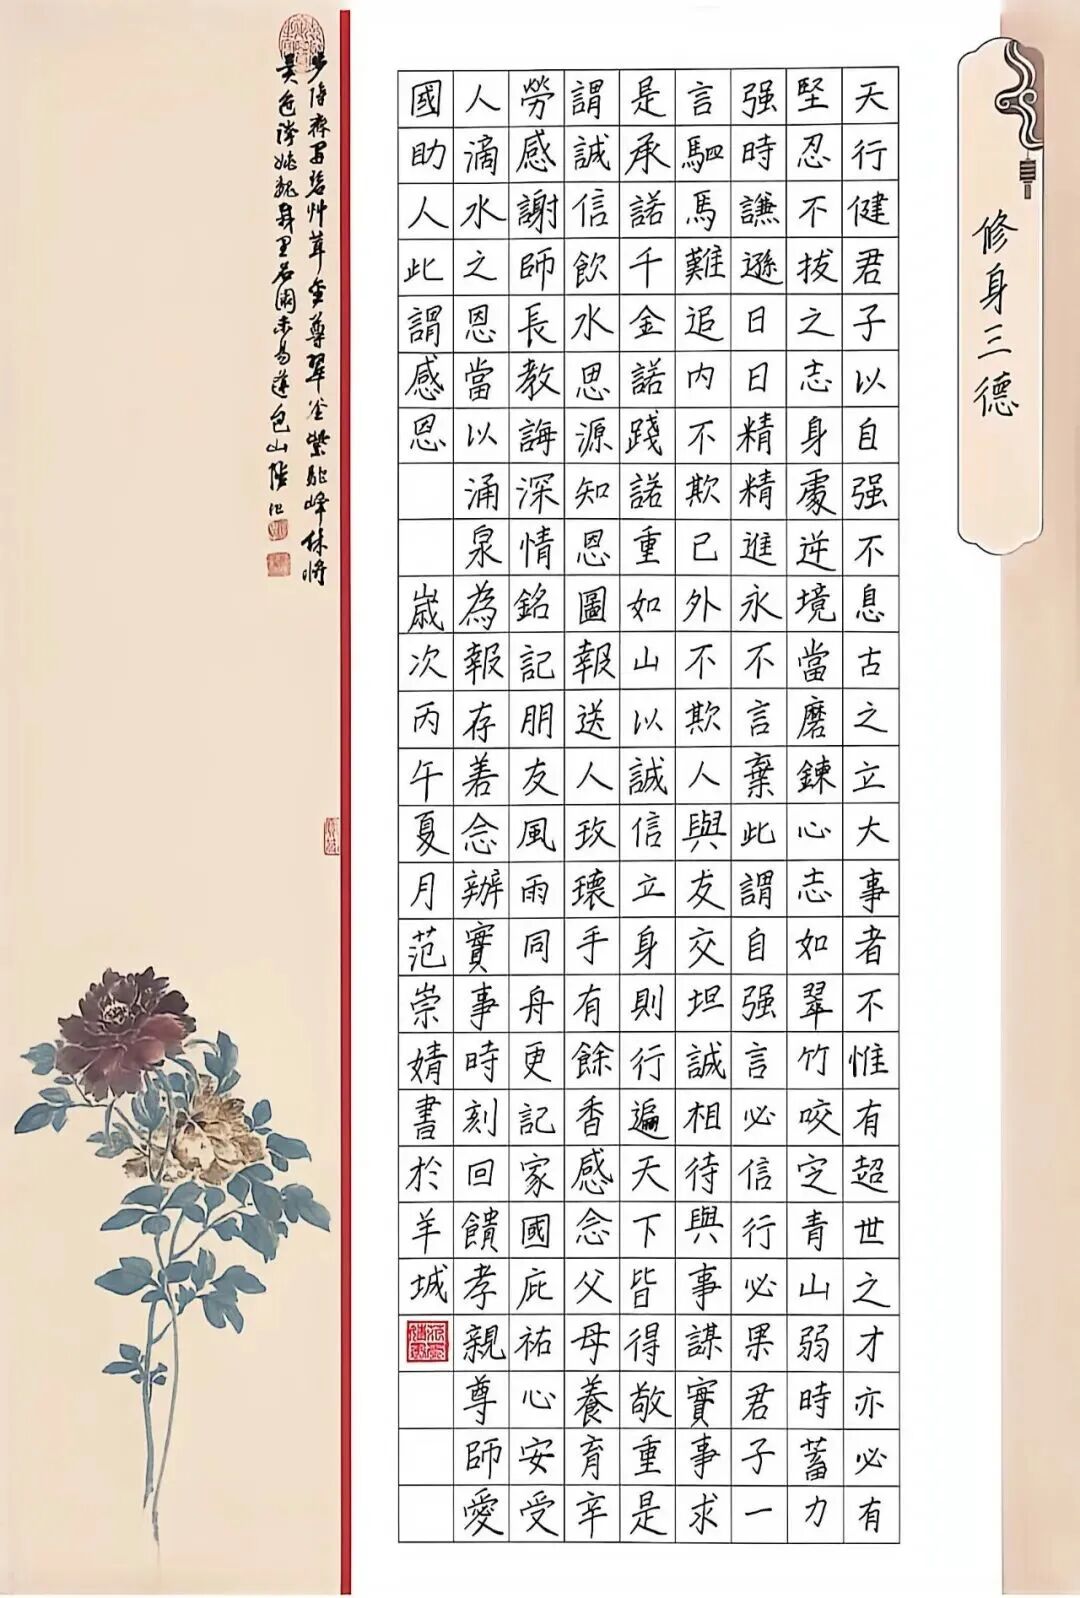 修身三德
天行健君子以自强不息古之立大事者不惟有超世之才亦必有
堅忍不拔之志身處逆境當磨鍊心志如翠竹咬定青山弱時蓄力
强時謙遜日日精精進永不言棄此謂自强言必信行必果君子一
言駟馬難追内不欺已外不欺人與友交坦誠相待與事謀實事求
是承諾千金諾踐諾重如山以誠信立身則行遍天下皆得敬重是
謂誠信飲水思源知恩圖報送人玫瓌手有餘香感念父母養育辛
勞感謝師長教誨深情銘記朋友風雨同舟更記家國庇祐心安受
人滴水之恩當以涌泉為報存善念辦實事時刻回饋孝親尊師愛
國助人此謂感恩
歲次丙午夏月范崇婧書於羊城
碧艸茸金尊翠釜紫駝峰休將
色誇姚魏名園未易逢包山陸治